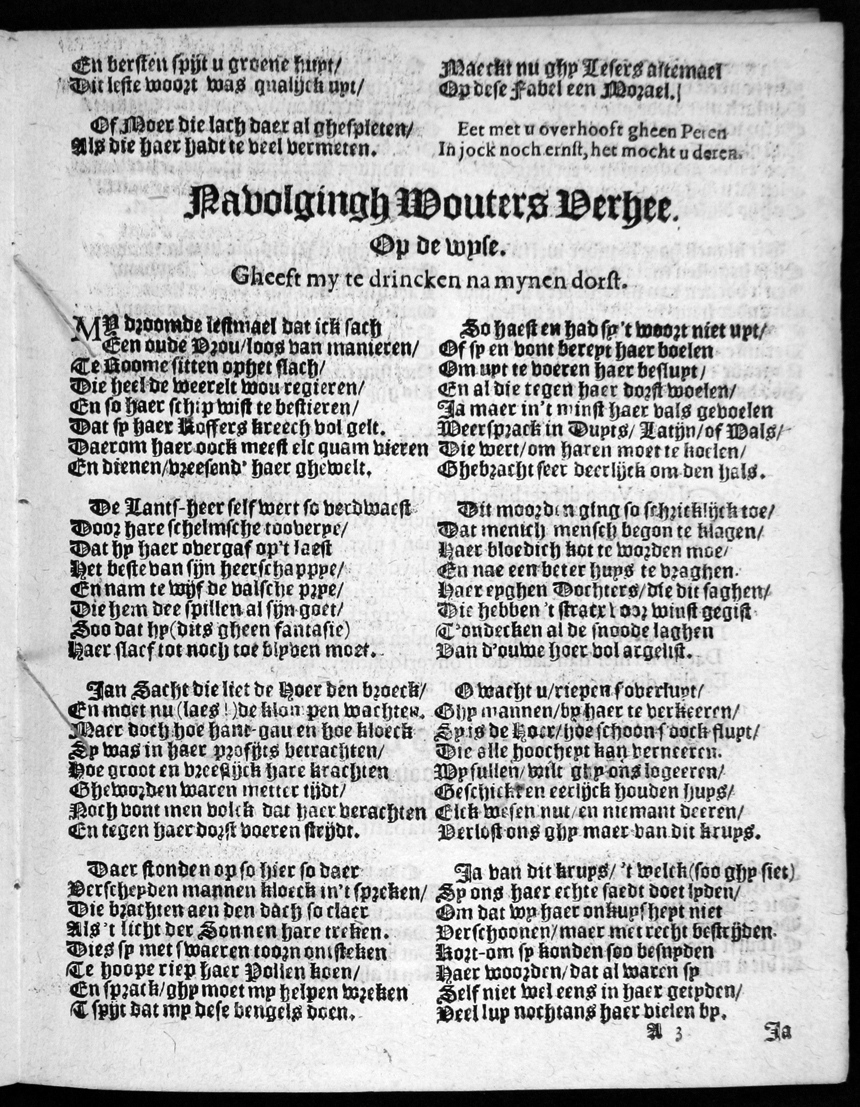 En bersten spijt u groene huyt/
Dit leste woort was qualijck uyt/
Of Moer die lach daer al ghespleten/
Als die haer hadt te veel vermeten.
Maeckt nu ghy Lesers altemael
Op dese Fabel een Morael.
Eet met u overhooft gheen Peren
In jock noch ernst, het mocht u deren.
Navolgingh Wouters Verhee.
Op de wyse.
Gheeft my te drincken na mynen dorst.
MY droomde lestmael dat ick sach
Een oude Vrou/loos van manieren/
Te Roome sitten op het slach/
Die heel de weerelt wou regieren/
En so haer schip wist te bestieren/
Dat sy haer Koffers kreech vol gelt.
Daerom haer oock meest elc quam vieren
En dienen/vreesend' haer ghewelt.
De Lants-heer self wert so verdwaest
Door hare schelmsche tooverye/
Dat hy haer overgaf op't laest
Het beste van sijn heerschappye/
En nam te wijf de valsche prye/
Die hem dee spillen al sijn goet/
Soo dat hy (dits gheen fantasie)
Haer slaef tot noch toe blyven moet.
Jan Sacht die liet de Hoer den broeck/
En moet nu (laes!) de klompen wachten.
Maer doch hoe hane-gau en hoe kloeck
Sy was in haer profijts betrachten/
Hoe groot en vreeslijck hare krachten
Gheworden waren metter tijdt/
Noch vont men volck dat haer verachten
En tegen haer dorst voeren strijdt.
Daer stonden op so hier so daer
Verscheyden mannen kloeck in't spreken/
Die brachten aen den dach so claer
Als 't licht der Sonnen hare treken.
Dies sy met swaeren toorn ontsteken
Te hoope riep haer Pollen koen/
En sprack/ghy moet my helpen wreken
T spijt dat my dese bengels doen.
So haest en had sy 't woort niet uyt/
Of sy en vont bereyt haer boelen
Om uyt te voeren haer besluyt/
En al die tegen haer dorst woelen/
Ja maer in't minst haer vals gevoelen
Weersprack in Duyts/ Latijn/of Wals/
Die wert/om haren moet te koelen/
Ghebracht seer deerlijck om den hals.
Dit moorden ging so schricklijck toe/
Dat menich mensch begon te klagen/
Haer bloedich kot te worden moe/
En nae een beter huys te vraghen.
Haer eyghen Dochters/die dit saghen/
Die hebben 't strax voor winst gegist
T'ondecken al de snoode laghen
Van d'ouwe hoer vol argelist.
O wacht u/riepen s'overluyt/
Ghy mannen/by haer te verkeeren/
Sy is de Hoer/hoe schoon s'oock fluyt/
Die alle hoocheyt kan verneeren.
Wy sullen/wilt ghy ons logeeren/
Geschickt en eerlijck houden huys/
Elck wesen nut/en niemant deeren/
Verlost ons ghy maer van dit kruys.
Ja van dit kruys/ 't welck (soo ghy siet)
Sy ons haer echte saedt doet lyden/
Om dat wy haer onkuysheyt niet
Verschoonen/maer met recht bestrijden.
Kort-om sy konden soo besnyden
Haer woorden/dat al waren sy
Self niet wel eens in haer getyden/
Veel luy nochtans haer vielen by.
A 3
Ja